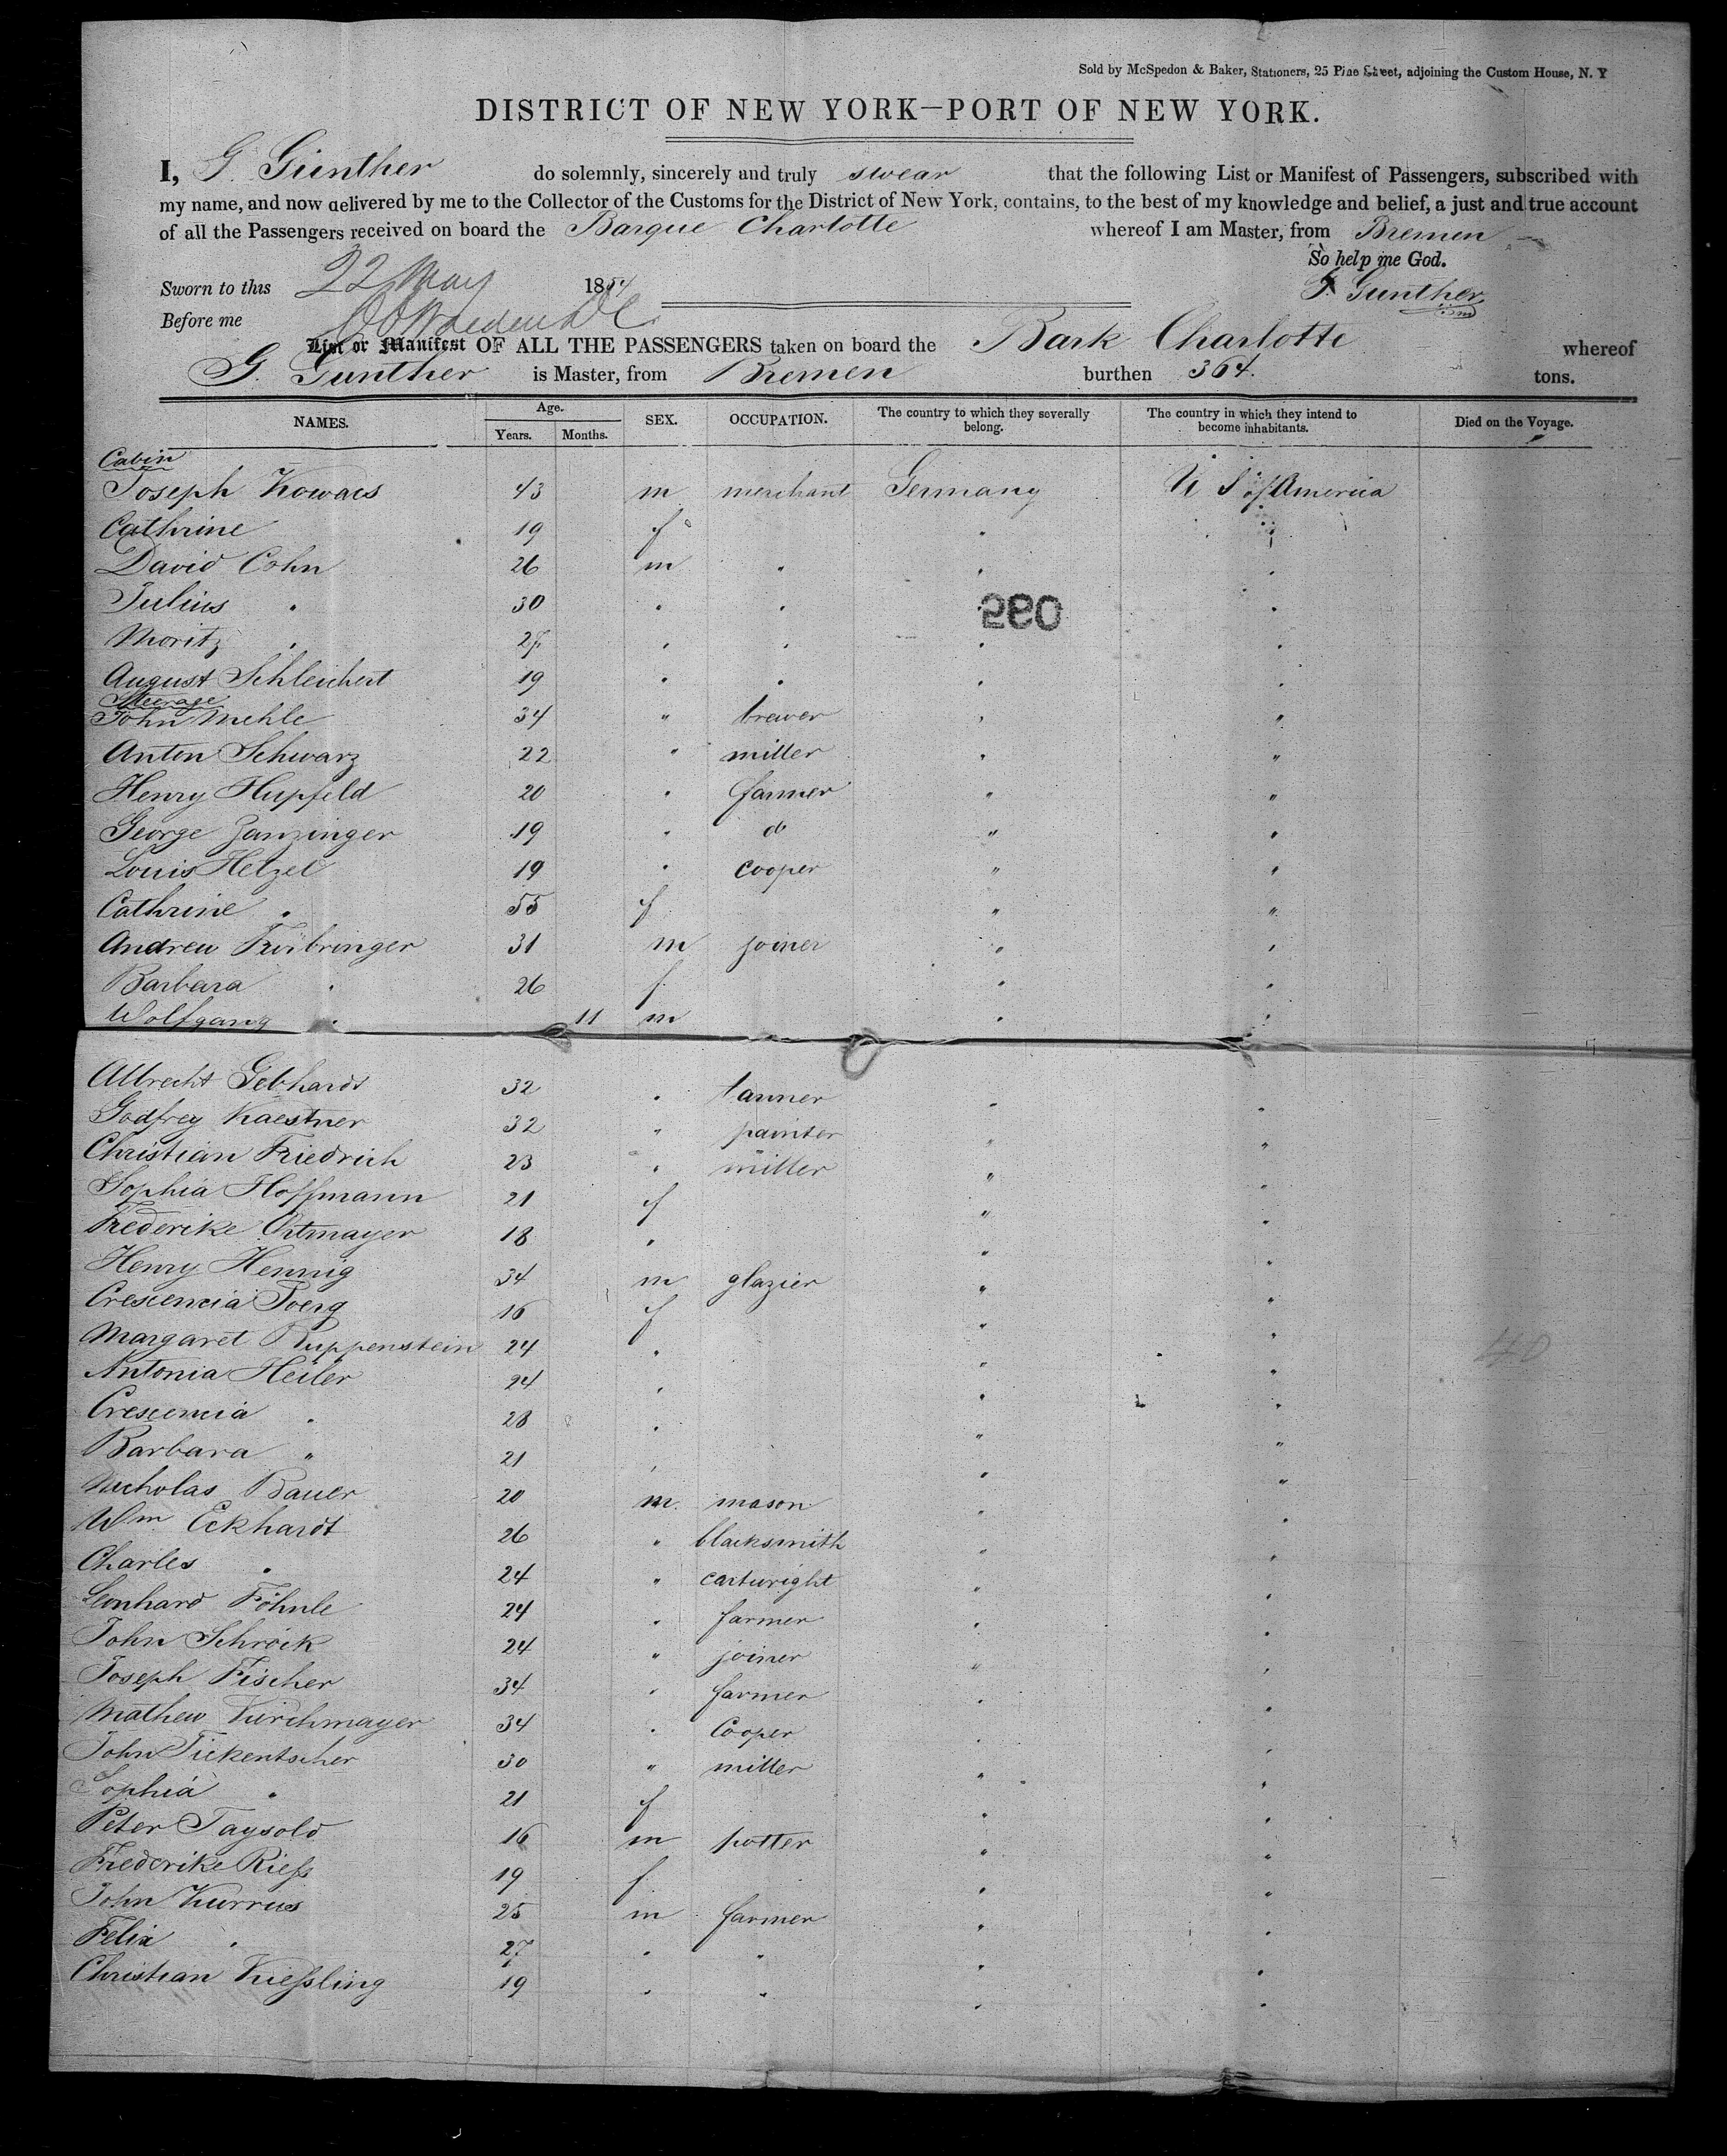 Sold by McSpedon & Baker, Stationers, 25 Pine Street, adjoining the Custom House, N. Y
DISTRICT OF NEW YORK—PORT OF NEW YORK.
I, G. Günther do solemnly, sincerely and truly swear that the following List or Manifest of Passengers, subscribed with
my name, and now delivered by me to the Collector of the Customs for the District of New York, contains, to the best of my knowledge and belief, a just and true account
of all the Passengers received on board the Barque Charlotte whereof I am Master, from Bremen
So help me God.
Sworn to this 22 May 1854 G. Gunther
Before me
List or Manifest OF ALL THE PASSENGERS taken on board the Bark Charlotte whereof
G. Gunther is Master, from Bremen burthen 364. tons.
NAMES. Age. Years. Months. SEX. OCCUPATION. The country to which they severally belong. The country in which they intend to become inhabitants. Died on the Voyage.
Cabin
Joseph Kowacs 43 m merchant Germany U S of America
Cathrine 19 f " "
David Cohn 26 m " " "
Julius " 30 " " " "
590
Moritz " 27 " " " "
August Schleichert 19 " " " "
Steerage
John Mehle 34 " brewer " "
Anton Schwarz 22 " miller " "
Henry Hupfeld 20 " farmer " "
George Zanzinger 19 " do " "
Louis Hetzel 19 " cooper " "
Cathrine " 55 f " "
Andrew Fürbringer 31 m joiner " "
Barbara " 26 f " "
Wolfgang " 11 m " "
Albrecht Gebhardt 32 " tanner " "
Godfrey Kaestner 32 " painter " "
Christian Friedrich 23 " miller " "
Sophia Hoffmann 21 f " "
Frederike Ortmayer 18 " " "
Henry Hennig 34 m glazier " "
Crescencia Joerg 16 f " "
Margaret Ruppenstein 24 " " "
40
Antonia Heiler 24 " " "
Crescencia " 28 " " "
Barbara " 21 " " "
Nicholas Bauer 20 m. mason " "
Wm Eckhardt 26 " blacksmith " "
Charles " 24 " cartwright " "
Leonhard Föhnle 24 " farmer " "
John Schröck 24 " joiner " "
Joseph Fischer 34 " farmer " "
Mathew Kirchmayer 34 " Cooper " "
John Fickentscher 30 " miller " "
Sophia " 21 f " "
Peter Taysold 16 m potter " "
Frederike Riess 19 f " "
John Kurrus 25 m farmer " "
Felix " 27 " " " "
Christian Kiessling 19 " " " "